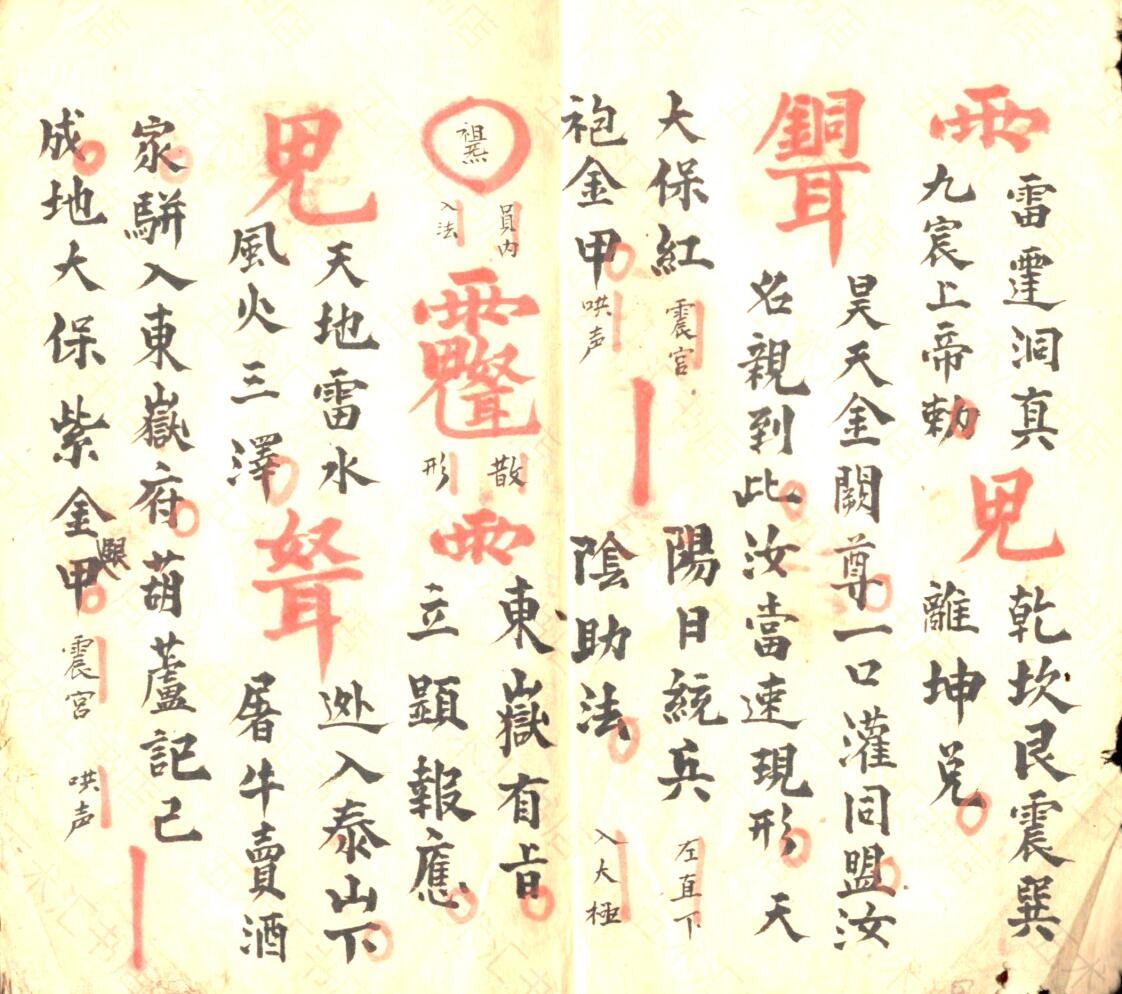 雨
雷霆洞真
九宸上帝勅
乾坎艮震巽
離坤兌
昊天金闕尊一口灌同盟汝
名親到此汝當速現形 天
大保紅 震宮
袍金甲 哄声
陽日統兵 左直下
陰助法 入大極
祖炁
員内
入法
散
形
雨
東嶽有旨
立顕報應
天地雷水
風火三澤
迯入泰山下
屠牛賣酒
家駢入東嶽府葫蘆記己
成地大保紫金甲 震宮 哄声